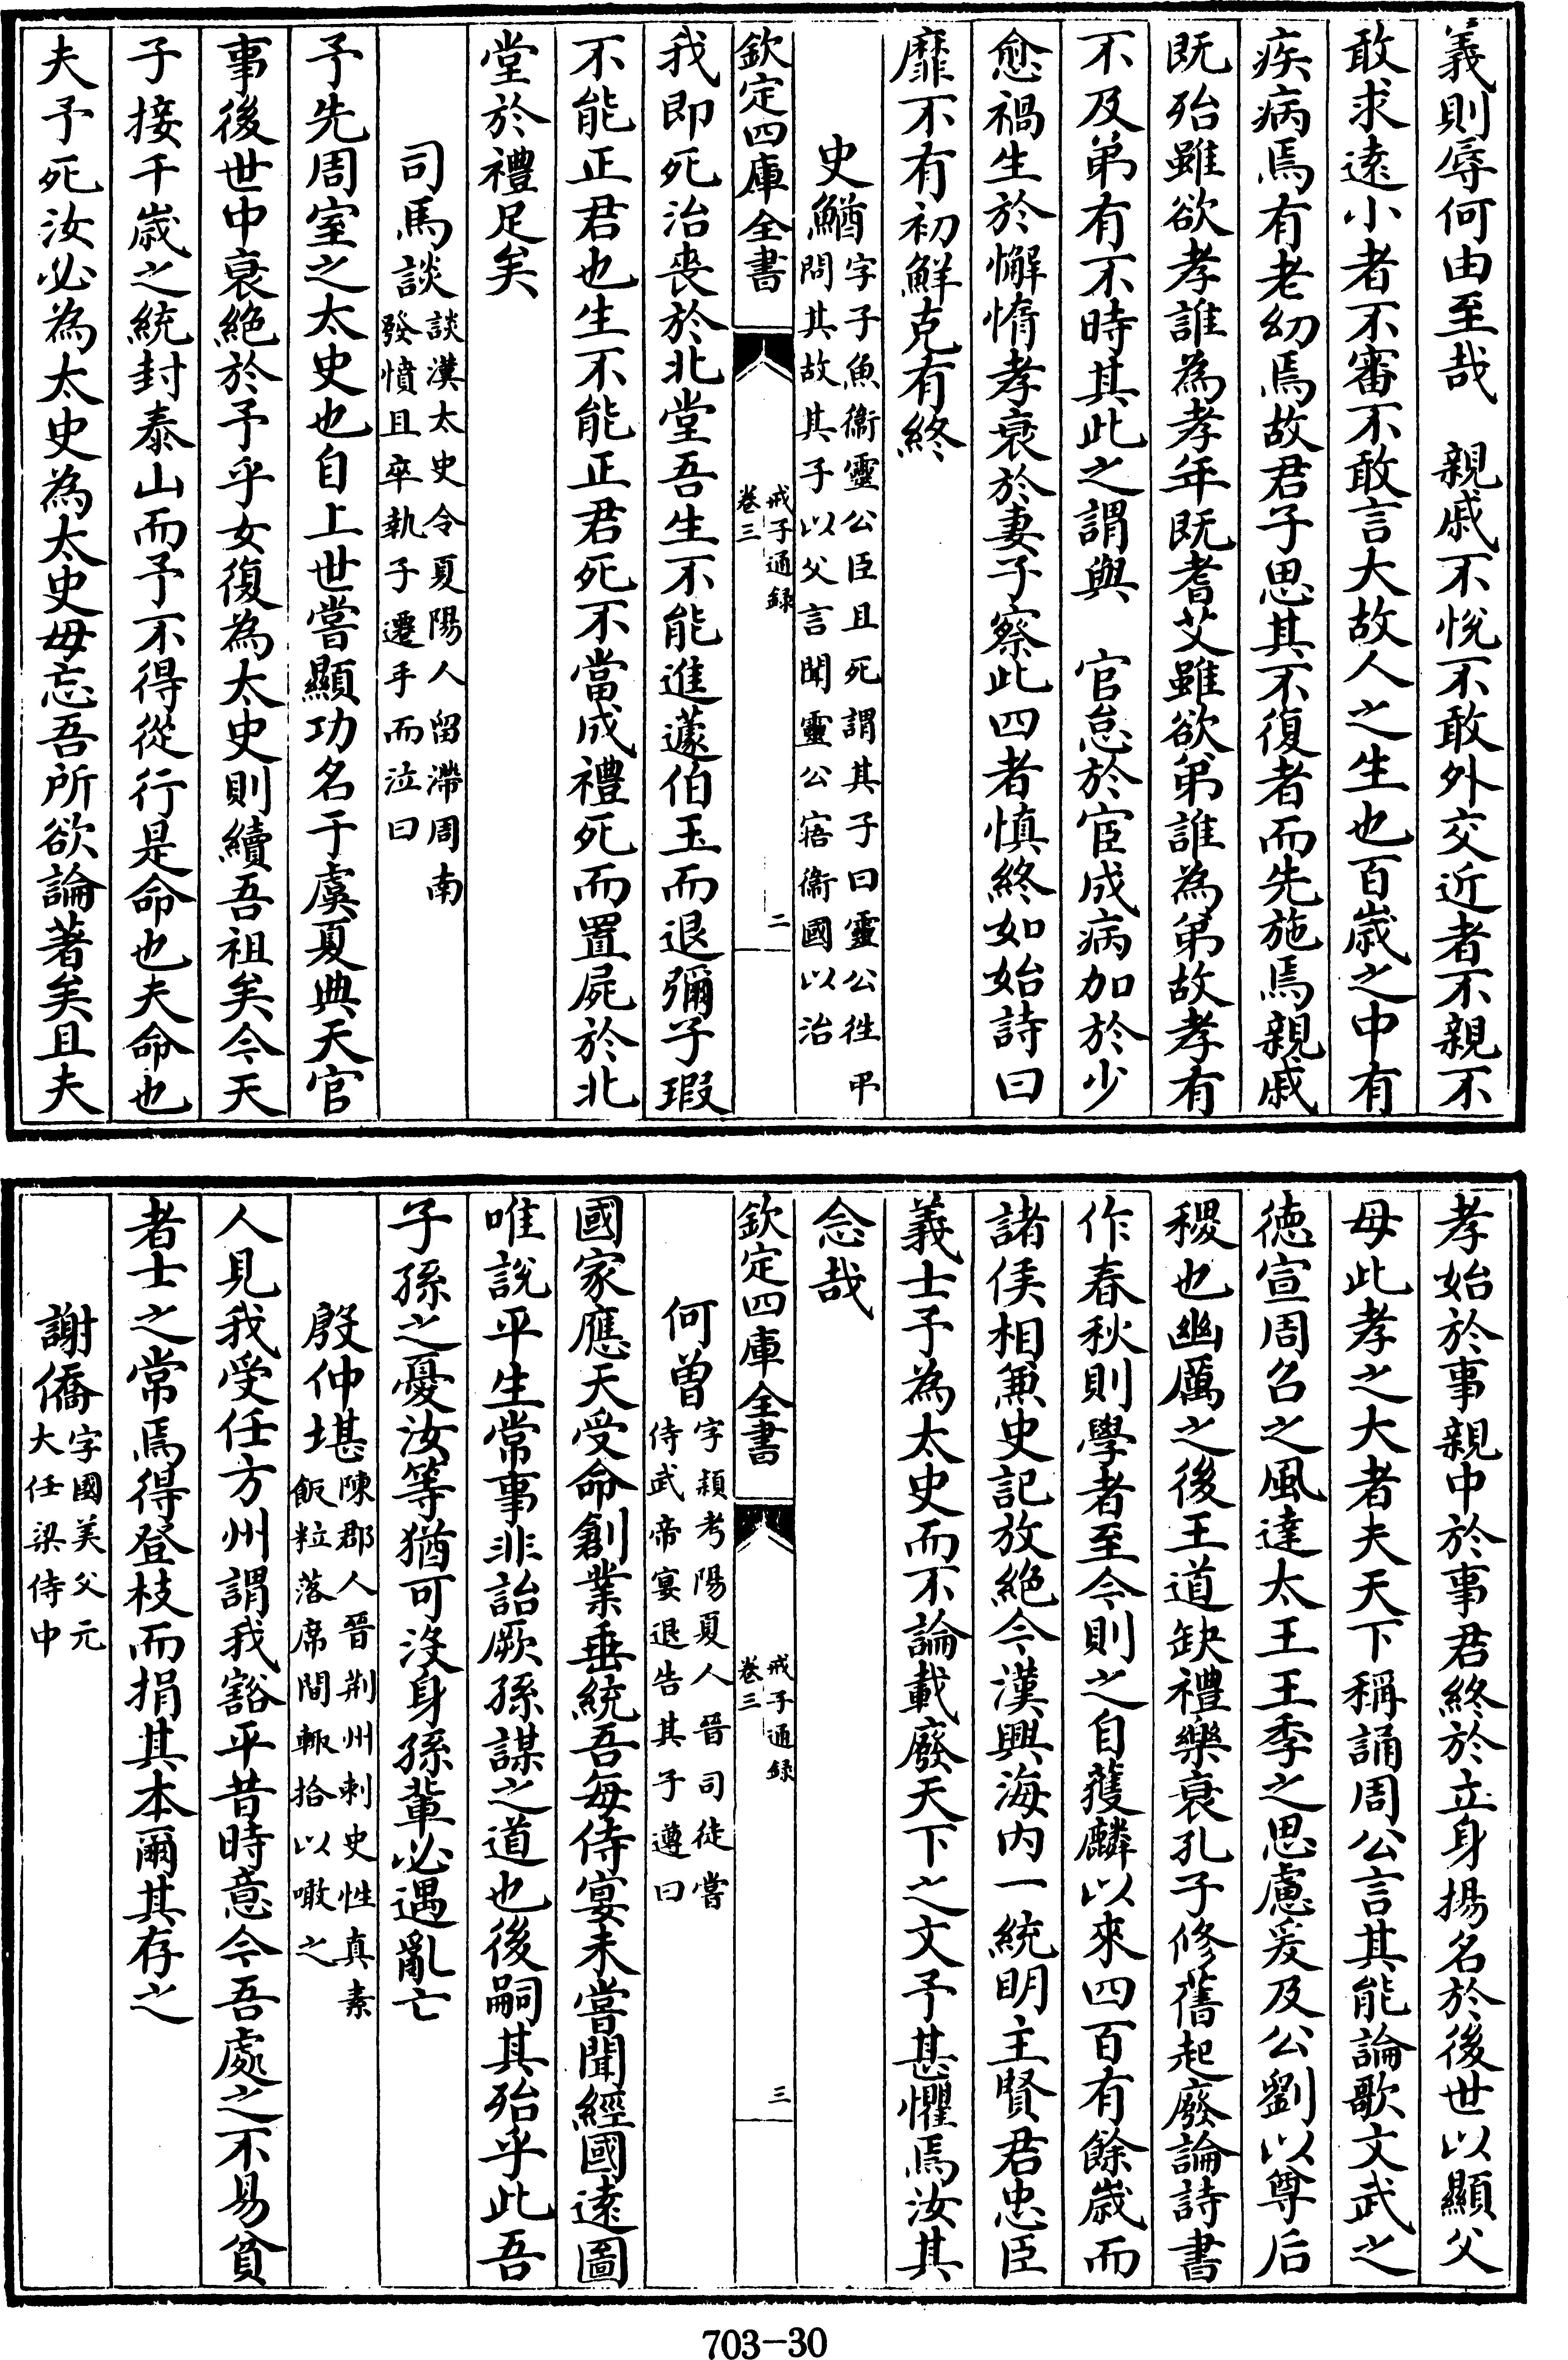 義則辱何由至哉　親戚不悅不敢外交近者不親不
敢求遠小者不審不敢言大故人之生也百歲之中有
疾病焉有老幼焉故君子思其不復者而先施焉親戚
既殆雖欲孝誰為孝年既耆艾雖欲弟誰為弟故孝有
不及弟有不時其此之謂與　官怠於宦成病加於少
愈禍生於懈惰孝衰於妻子察此四者慎終如始詩曰
靡不有初鮮克有終
史鰌字子魚衞靈公臣且死謂其子曰靈公往弔
問其故其子以父言聞靈公寤衞國以治
欽定四庫全書
戒子通録
卷三
二
我即死治喪於北堂吾生不能進蘧伯玉而退彌子瑕
不能正君也生不能正君死不當成禮死而置屍於北
堂於禮足矣
司馬談談漢太史令夏陽人留滯周南
發憤且卒執子遷手而泣曰
予先周室之太史也自上世嘗顯功名于虞夏典天官
事後世中衰絶於予乎女復為太史則續吾祖矣今天
子接千歲之統封泰山而予不得從行是命也夫命也
夫予死汝必為太史為太史毋忘吾所欲論著矣且夫
孝始於事親中於事君終於立身揚名於後世以顯父
母此孝之大者夫天下稱誦周公言其能論歌文武之
徳宣周召之風達太王王季之思慮爰及公劉以尊后
稷也幽厲之後王道缺禮樂衰孔子修舊起廢論詩書
作春秋則學者至今則之自獲麟以來四百有餘歲而
諸侯相兼史記放絶今漢興海内一統明主賢君忠臣
義士予為太史而不論載廢天下之文予甚懼焉汝其
念哉
欽定四庫全書
戒子通録
卷三
三
何曽字頴考陽夏人晉司徒嘗
侍武帝宴退告其子遵曰
國家應天受命創業垂統吾每侍宴未嘗聞經國遠圖
唯説平生常事非詒厥孫謀之道也後嗣其殆乎此吾
子孫之憂汝等猶可没身孫輩必遇亂亡
殷仲堪陳郡人晉荆州刺史性真素
飯粒落席間輙拾以噉之
人見我受任方州謂我豁平昔時意今吾處之不易貧
者士之常焉得登枝而捐其本爾其存之
謝僑字國美父元
大任梁侍中
703-30